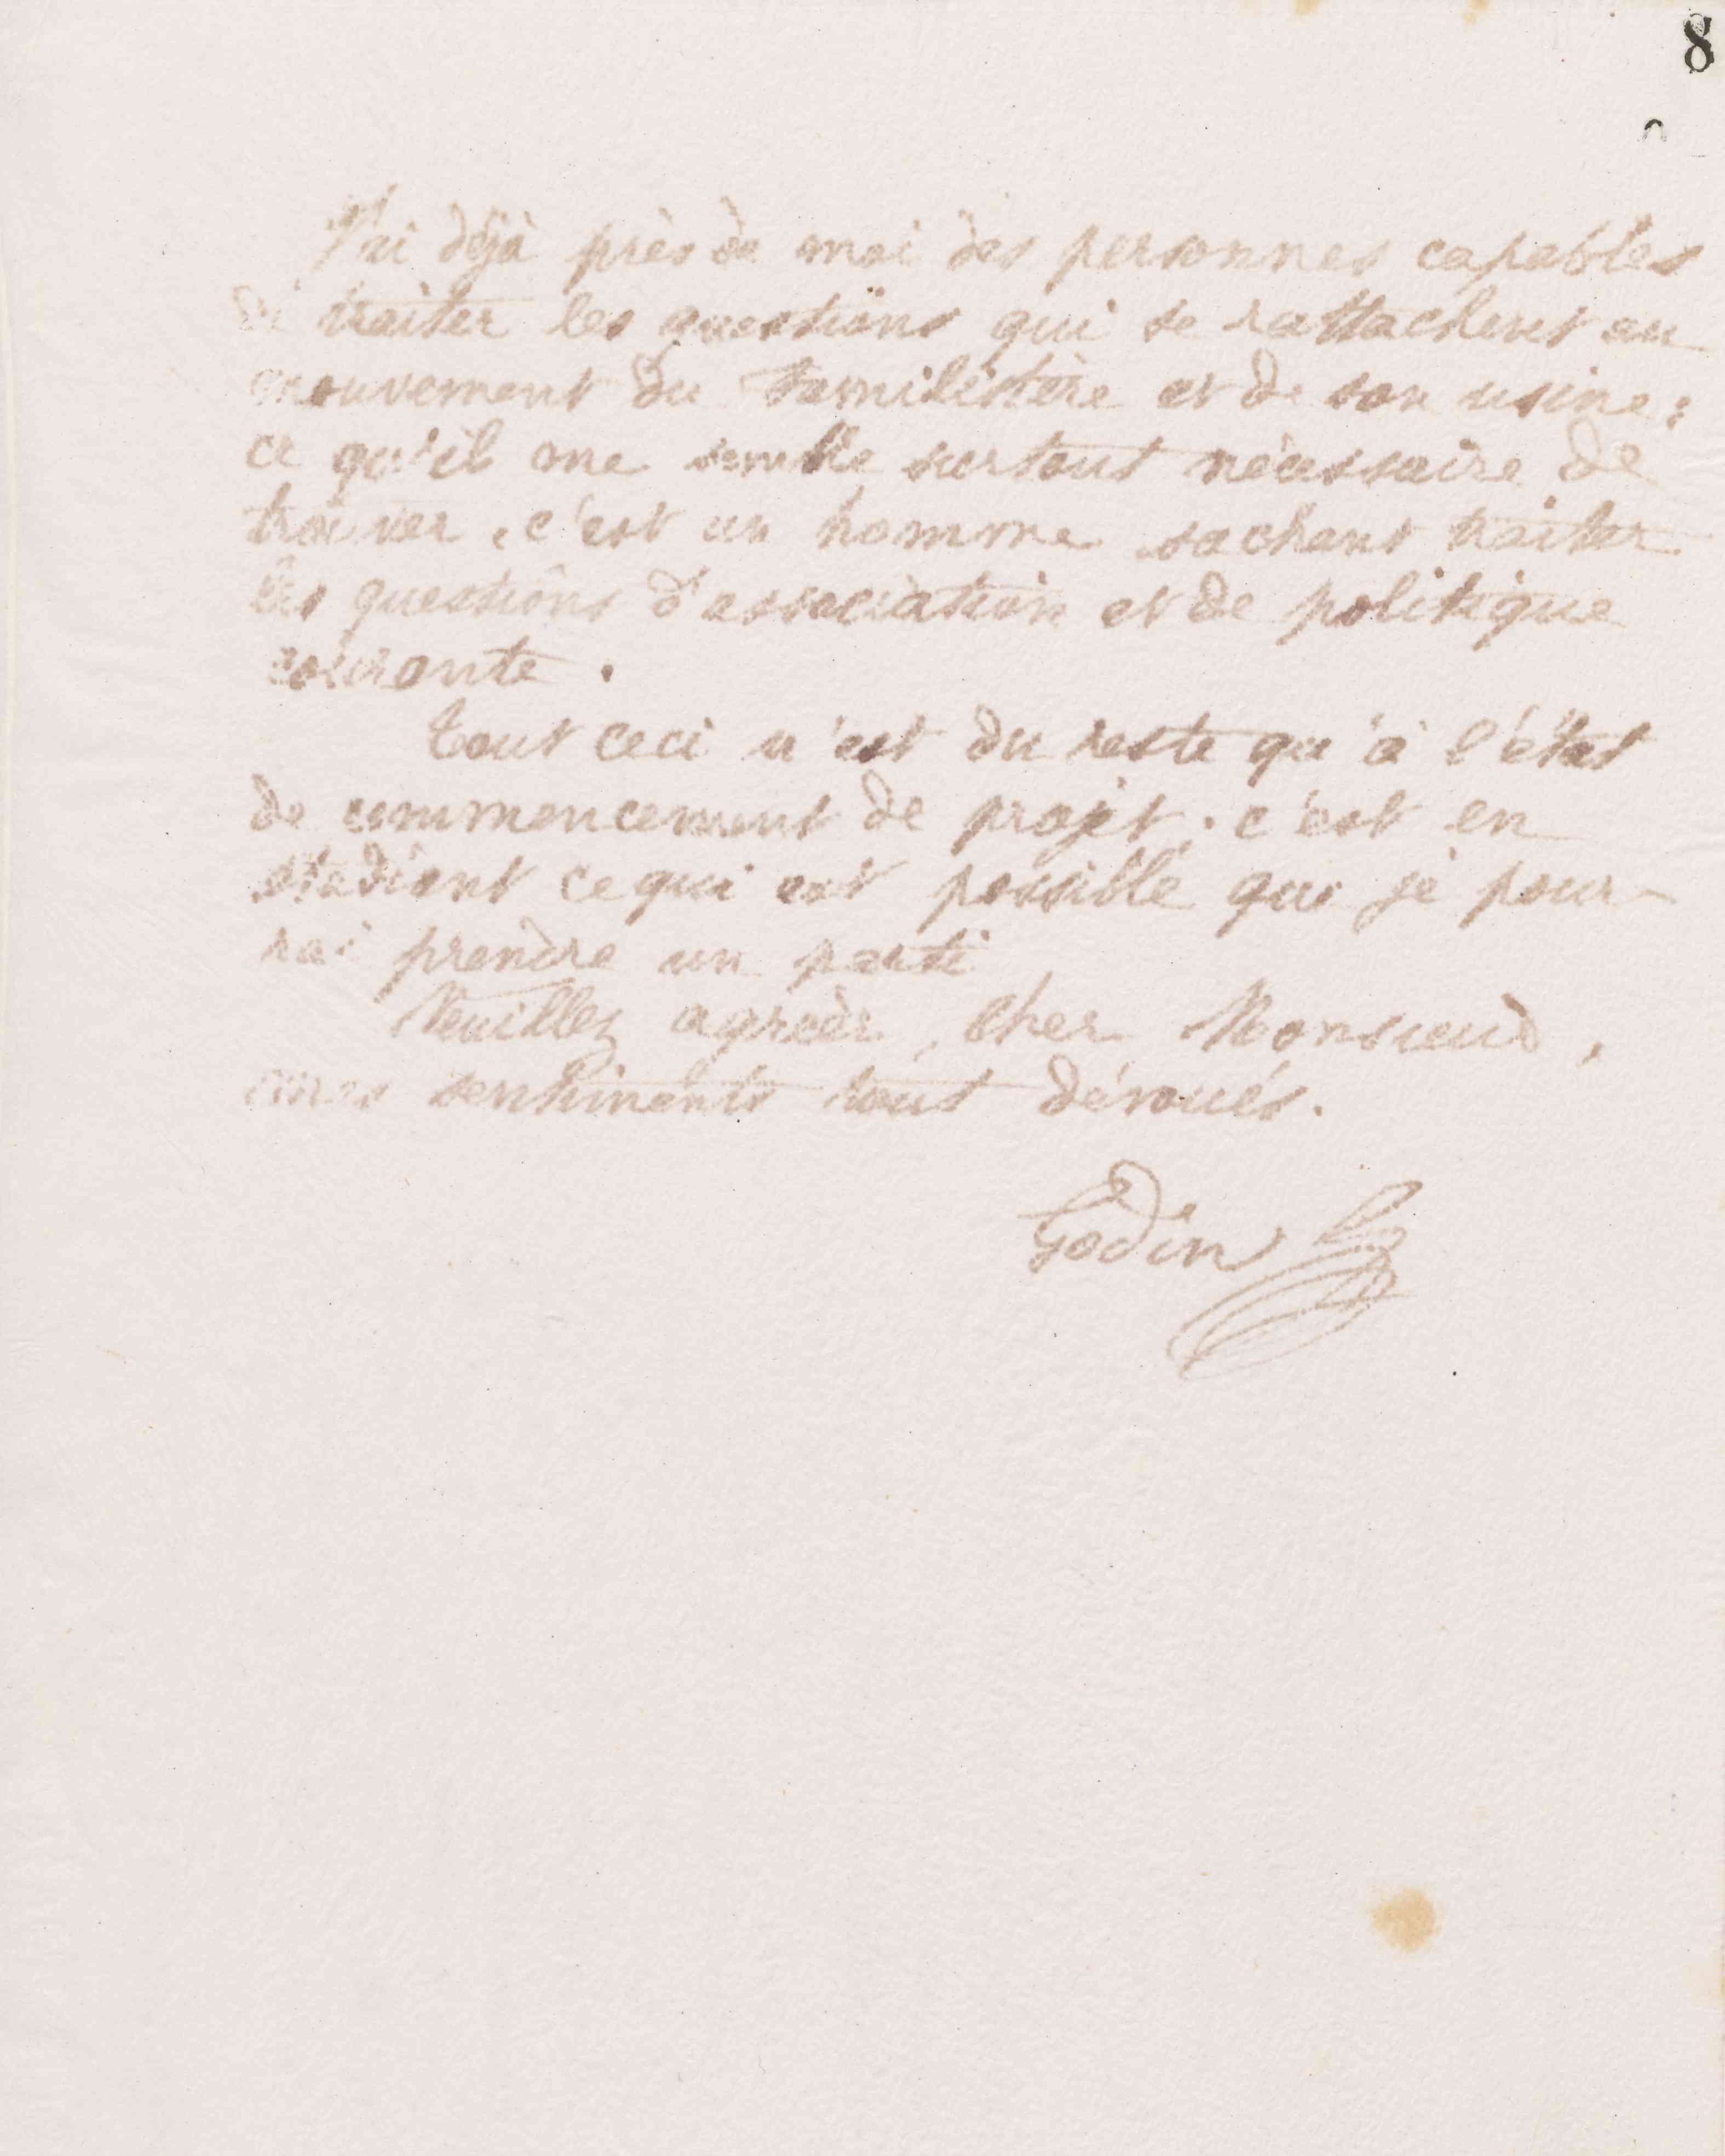 8
J'ai déjà près de moi des personnes capables
de traiter les questions qui se rattachent au
mouvement du Familistère et de son usine :
ce qu'il me semble surtout nécessaire de
trouver, c'est un homme sachant traiter
les questions d'association et de politique
courante.
Tout ceci n'est du reste qu'à l'état
de commencement de projet. c'est en
étudiant ce qui est possible que je pour-
rai prendre un parti
Veuillez agréer, Cher Monsieur,
mes sentiments tout dévoués.
Godin